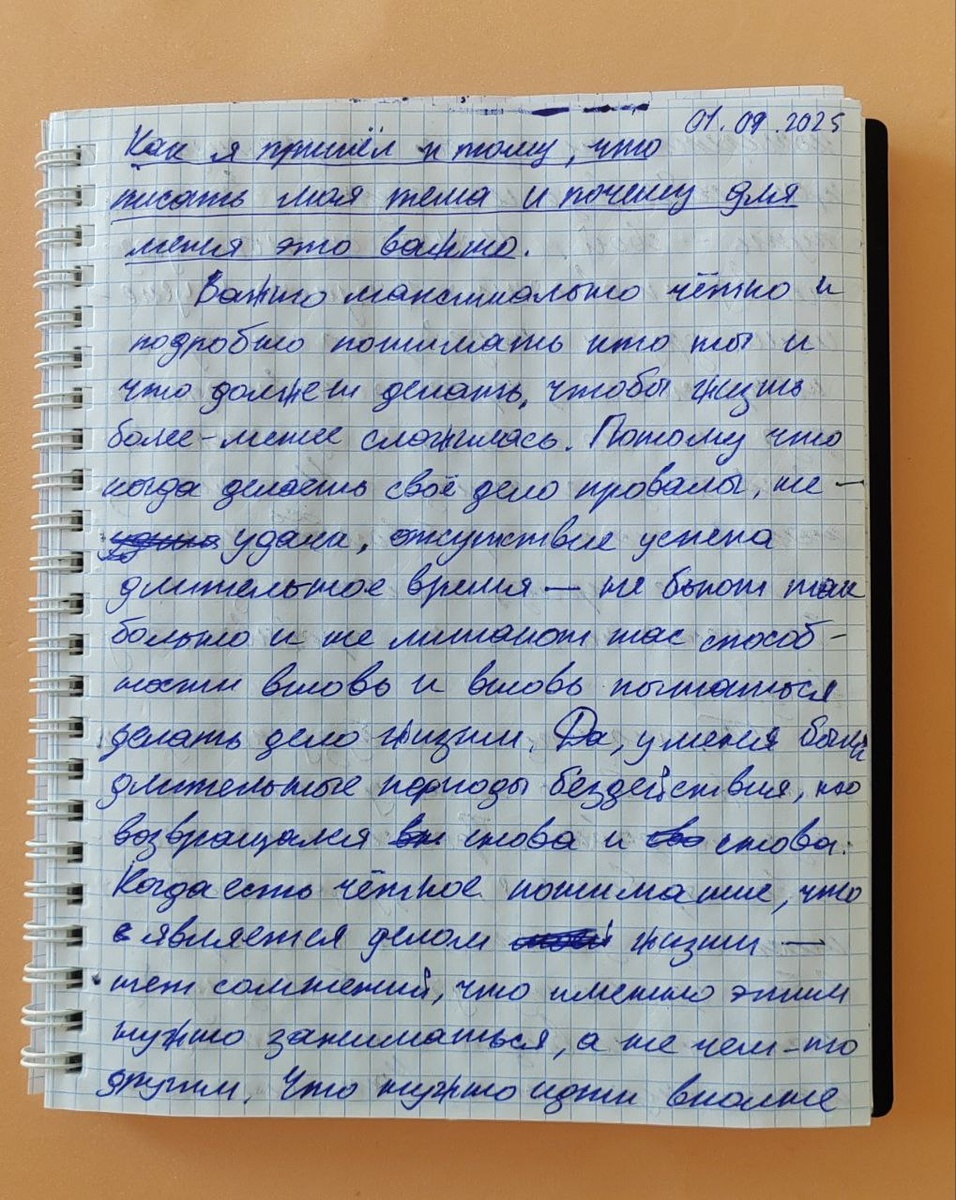 01.09.2025
Как я пришёл к тому, что
писать моя тема и почему для
меня это важно.
Важно максимально чётко и
подробно понимать кто ты и
что должен делать, чтобы жизнь
более-менее сложилась. Потому что
когда делаешь своё дело провалы, не-
удача, отсутствие успеха
длительное время — не бьют так
больно и не лишают нас способ-
ности вновь и вновь пытаться
делать дело жизни. Да, у меня были
длительные периоды бездействия, но
возвращался снова и снова.
Когда есть чёткое понимание, что
является делом жизни —
нет сомнений, что именно этим
нужно заниматься, а не чем-то
другим. Что нужно идти вполне